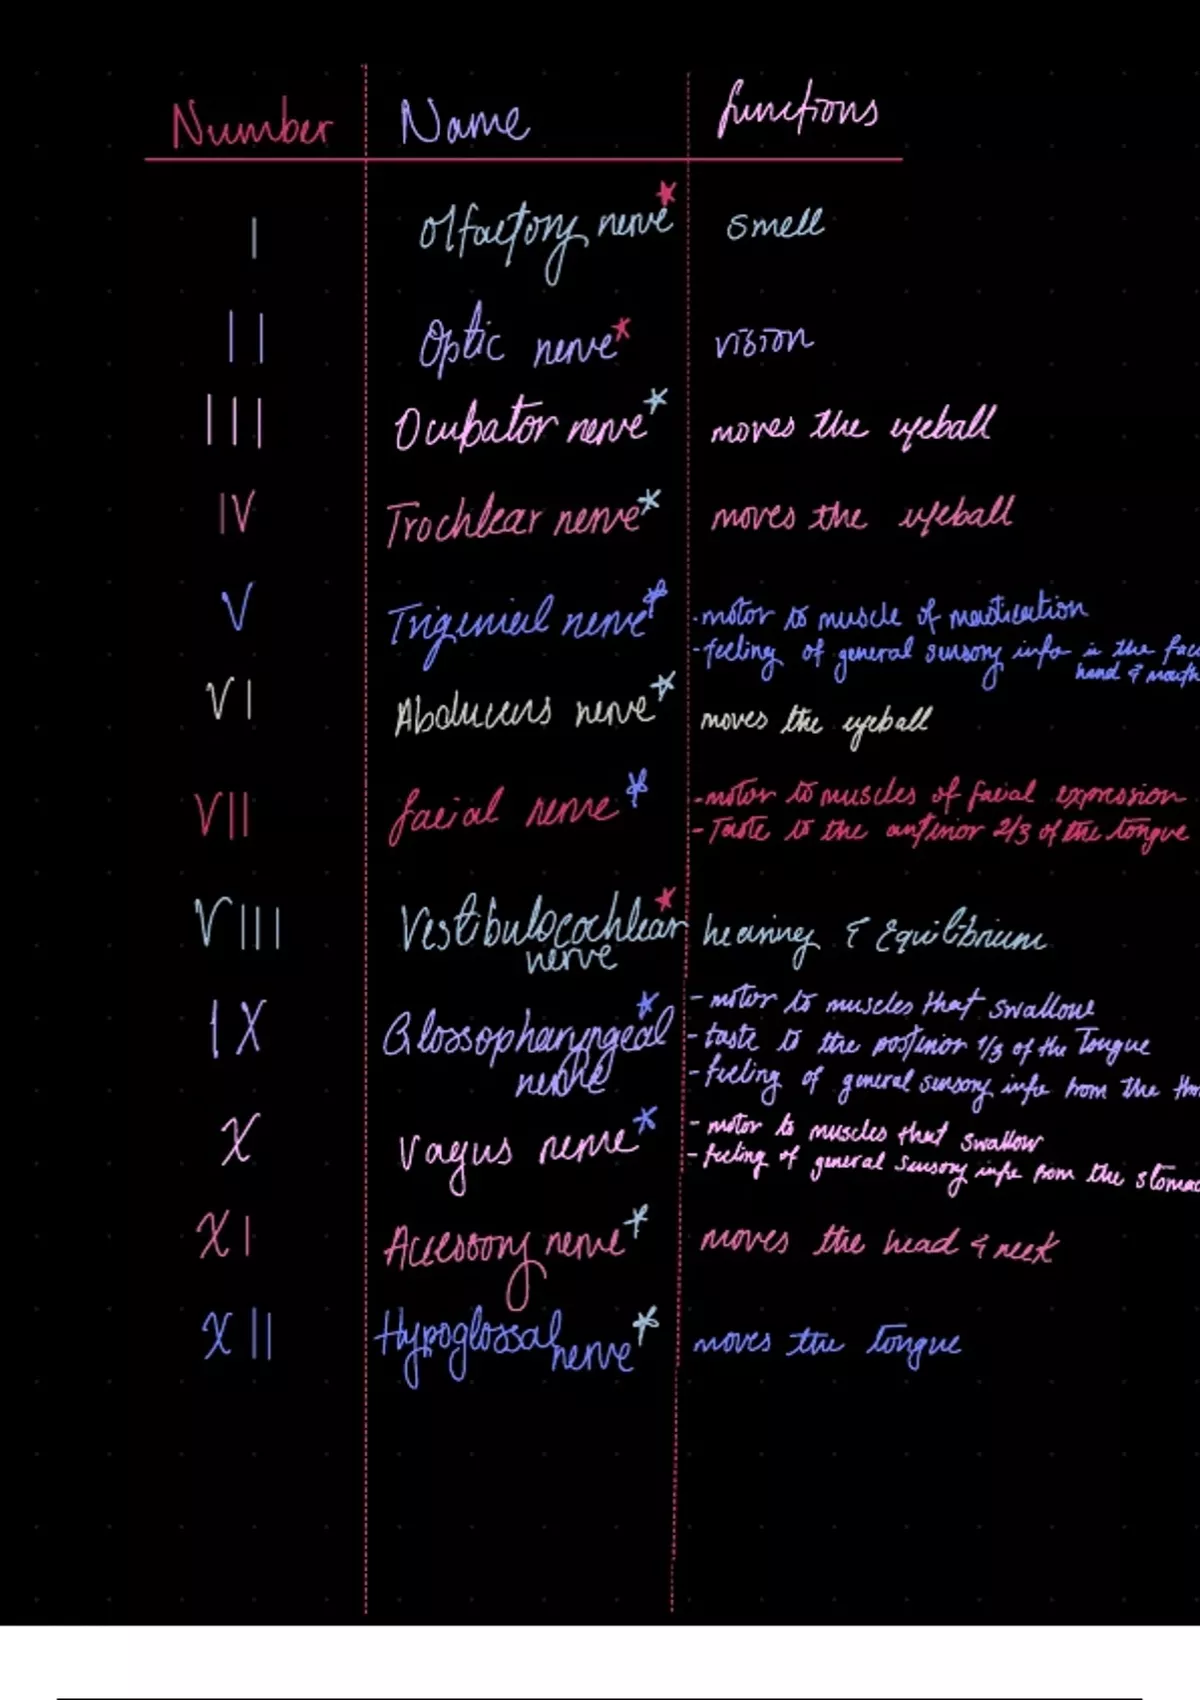 Number Name functions
I Olfactory nerve* smell
II Optic nerve* vision
III Oculbator nerve* moves the eyeball
IV Trochlear nerve* moves the eyeball
V Trigeminal nerve* - motor to muscle of mastication
- feeling of general sensory info in the fac
hand & mouth
VI Abducens nerve* moves the eyeball
VII facial nerve* - motor to muscles of facial expression
- Taste to the anterior 2/3 of the tongue
VIII Vestibulocochlear nerve* hearing & Equilibrium
IX Glossopharyngeal nerve* - motor to muscles that swallow
- taste to the posterior 1/3 of the Tongue
- feeling of general sensory info from the thro
X Vagus nerve* - motor to muscles that swallow
- feeling of general sensory info from the stomac
XI Accessory nerve* moves the head & neck
XII Hypoglossal nerve* moves the tongue